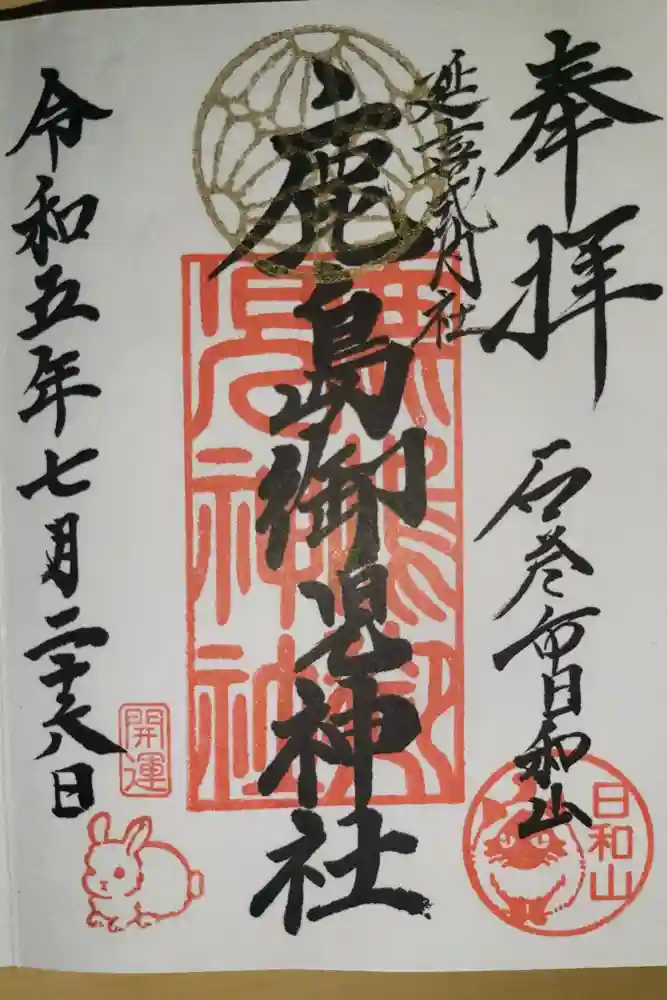 奉拝
石巻市日和山
延喜式内社
鹿島御児神社
令和五年七月二十八日
鹿島御児神社
開運
日和山